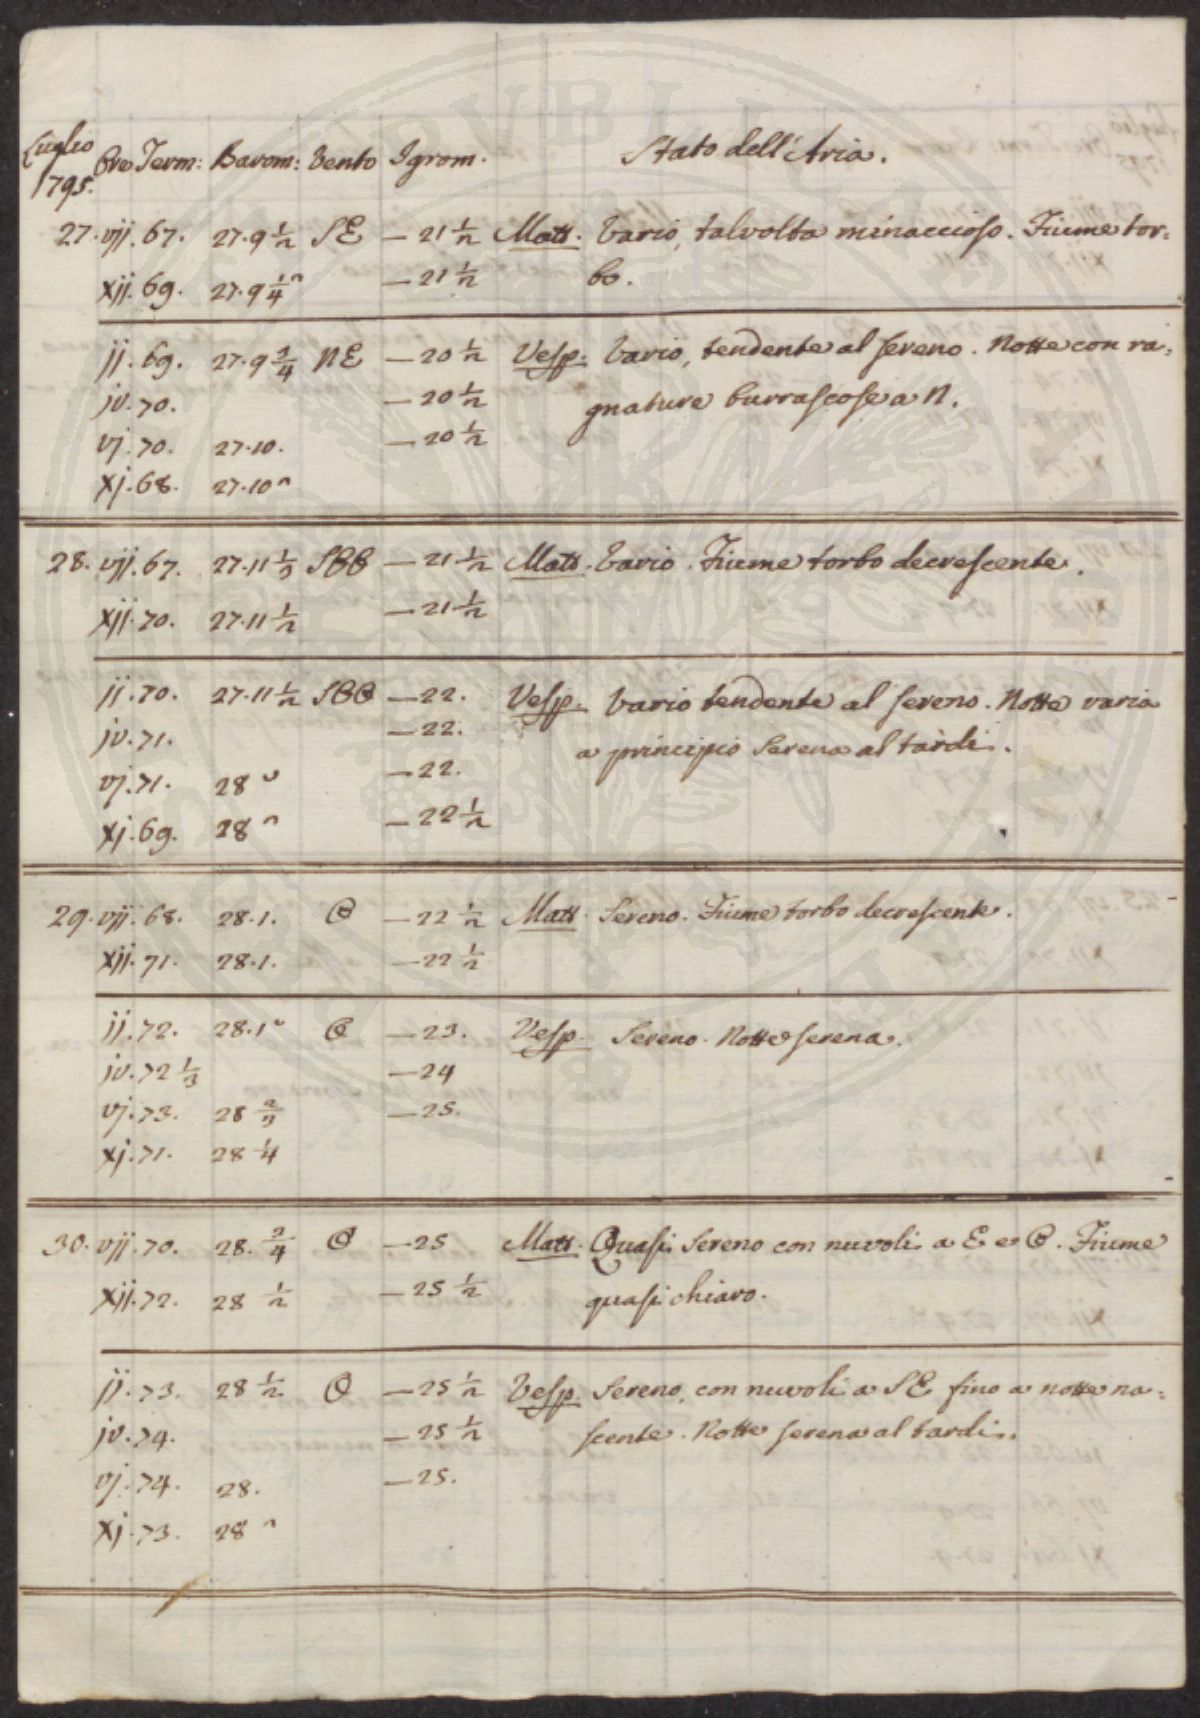 Luglio 1795. Ore Term: Barom: Vento Igrom. Stato dell'Aria.
27. vij. 67. 27.9 1/2 SE – 21 1/2 Matt. Vario, talvolta minaccioso. Fiume tor-
xij. 69. 27.9 1/4 ^ – 21 1/2 bo.
ij. 69. 27.9 3/4 NE – 20 1/2 Vesp. Vario, tendente al sereno. Notte con ra-
iv. 70. – 20 1/2 gnature burrascose a N.
vj. 70. 27.10. – 20 1/2
xj. 68. 27.10 ^
28. vij. 67. 27.11 1/3 SOO – 21 1/2 Matt. Vario. Fiume torbo decrescente.
xij. 70. 27.11 1/2 – 21 1/2
ij. 70. 27.11 1/2 SOO – 22. Vesp. Vario tendente al sereno. Notte varia
iv. 71. – 22. a principio serena al tardi.
vj. 71. 28 ᵕ – 22.
xj. 69. 28 ^ – 22 1/2
29. vij. 68. 28.1. O – 22 1/2 Matt. Sereno. Fiume torbo decrescente.
xij. 71. 28.1. – 22 1/2
ij. 72. 28.1 ᵕ O – 23. Vesp. Sereno. Notte serena.
iv. 72 1/3 – 24
vj. 73. 28 2/3 – 25.
xj. 71. 28 1/4
30. vij. 70. 28. 2/4 O – 25 Matt. Quasi sereno con nuvoli a E e O. Fiume
xij. 72. 28 1/2 – 25 1/2 quasi chiaro.
ij. 73. 28 1/2 O – 25 1/2 Vesp. Sereno, con nuvoli a SE fino a notte na-
iv. 74. – 25 1/2 scente. Notte serena al tardi.
vj. 74. 28. – 25.
xj. 73. 28 ^